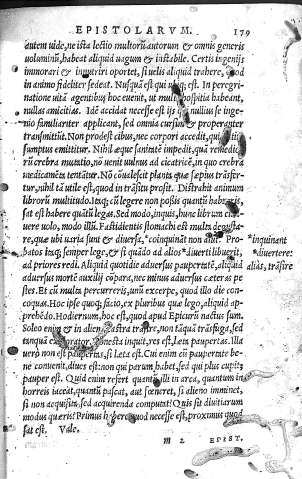 EPISTOLARVM. 179
autem uide, ne ista lectio multorũ autorum & omnis generis
uoluminũ, habeat aliquid uagum & instabile. Certis ingenijs
immorari & innutriri oportet, si uelis aliquid trahere, quod
in animo fideliter sedeat. Nusquã est qui est. In peregri-
natione uitã agentibus hoc euenit, ut multa hospitia habeant,
nullas amicitias. Idẽ accidat necesse est ijs qui nullius se inge-
nio familiariter applicant, sed omnia cursim & properantes
transmittũt. Non prodest cibus, nec corpori accedit, qui
sumptus emittitur. Nihil æque sanitatẽ impedit, quã remedio-
rũ crebra mutatio, nõ uenit uulnus ad cicatricẽ, in quo crebra
medicamẽta tentatur. Nõ conualescit planta quæ sæpius trãsfer-
tur, nihil tã utile est, quod in trãsitu prosit. Distrahit animum
librorũ multitudo. Itaq; cũ legere non possis quantũ habueris,
sat est habere quatũ legas. Sed modo, inquis, hunc librum
uere uolo, modo illũ. Fastidientis stomachi est multa degusta-
re, quæ ubi uaria sunt & diuersa, *coinquinãt non alũt. Pro-
batos itaq; semper lege, & si quãdo ad alios *diuerti libuerit,
ad priores redi. Aliquid quotidie aduersus paupertatẽ, aliquid
aduersus mortẽ auxilij cõpara, nec minus aduersus cæteras pe-
stes. Et cũ multa percurreris, unũ excerpe, quod illo die con-
coquas. Hoc ipse quoq; facio, ex pluribus quæ lego, aliquid ap-
prehẽdo. Hodiernum, hoc est, quod apud Epicurũ nactus sum.
Soleo enim & in aliena castra trãsire, non tãquã trãsfuga, sed
tanquã explorator. Honesta inquit, res est, læta paupertas. Illa
uero non est paupertas, si læta est. Cui enim cũ paupertate be-
ne conuenit, diues est: non qui parum habet, sed qui plus cupit,
pauper est. Quid enim refert quantũ illi in arca, quantum in
horreis iaceat, quantũ pascat, aut fœneret, si alieno imminet,
si non acquisita, sed acquirenda computat? Quis sit diuitiarum
modus quæris? Primus habere quod necesse est, proximus quod
sat est. Vale.
*inquinant
*diuertere:
aliàs, trãsire
m 2 EPIST.